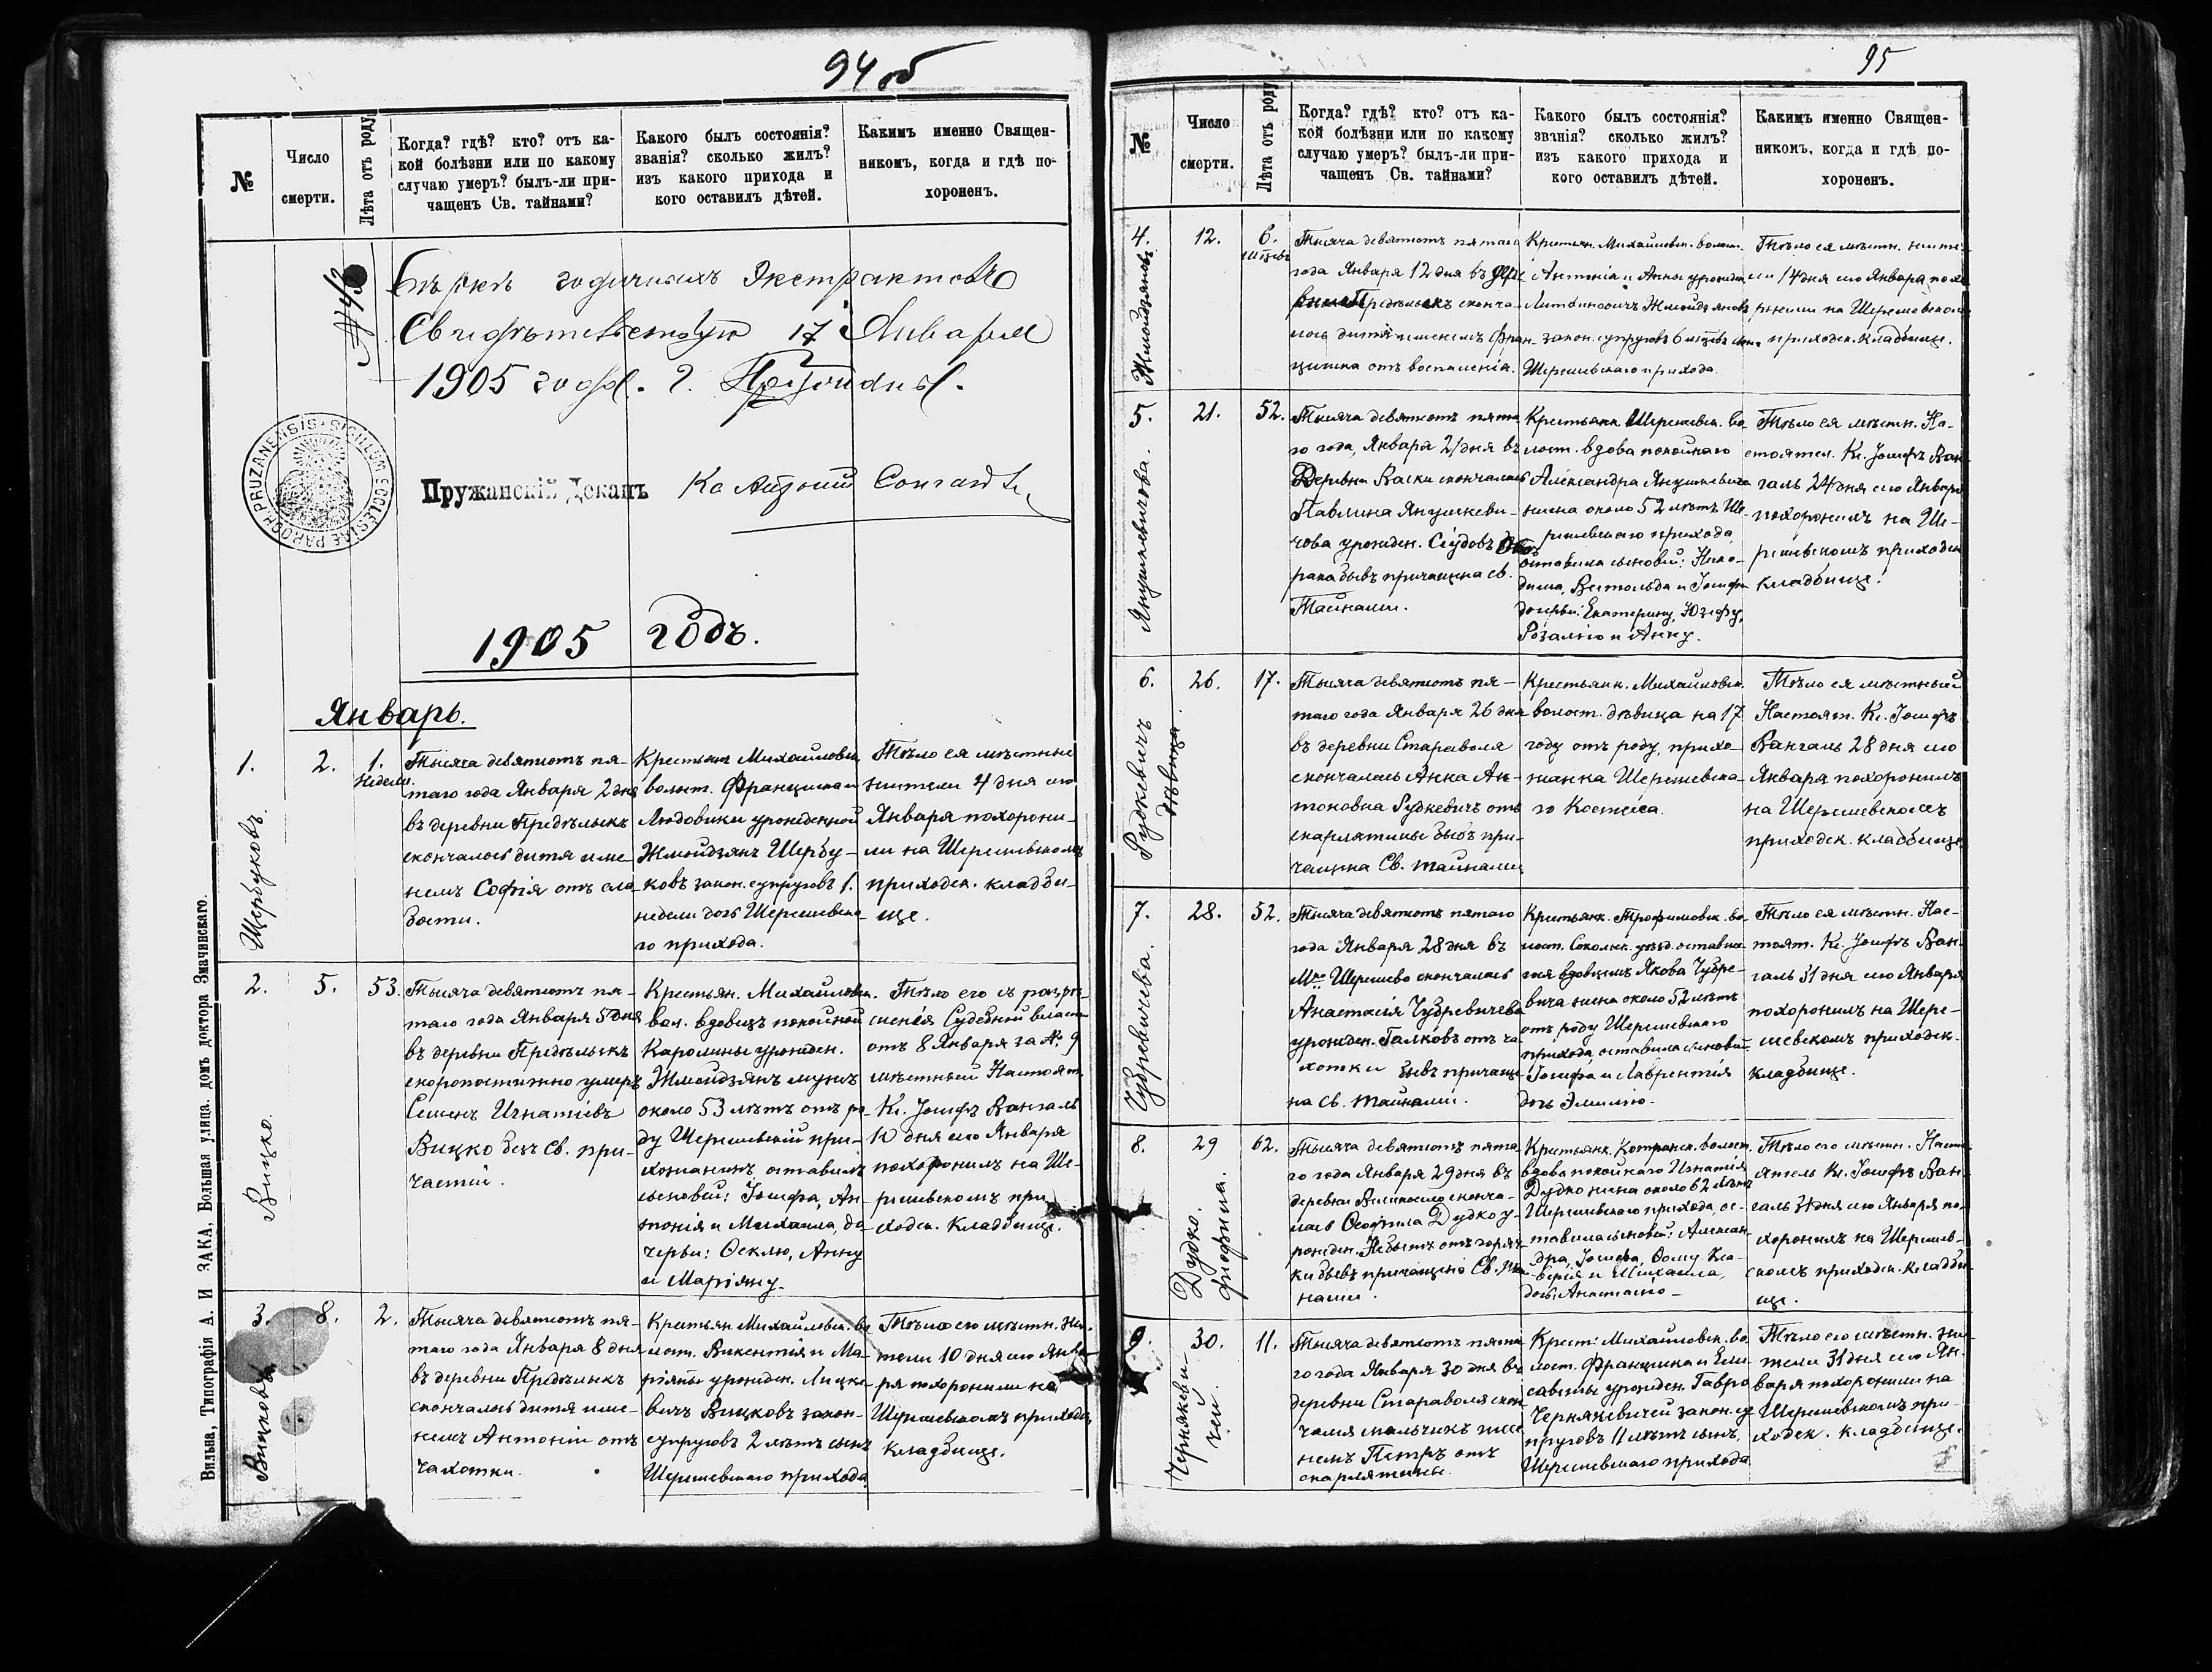 94 об
№
Число
смерти.
Лѣта отъ роду
Когда? гдѣ? кто? отъ ка-
кой болѣзни или по какому
случаю умеръ? былъ-ли при-
чащенъ Св. тайнами?
Какого былъ состоянія?
званія? сколько жилъ?
изъ какого прихода и
кого оставилъ дѣтей.
Какимъ именно Священ-
никомъ, когда и гдѣ по-
хороненъ.
годичныхъ Экстрактовъ
Свидѣтельствую 17 Января
1905 года. г. Пружаны.
SIGILLUM ECCLESIAE PAROCH PRUZANENSIS
Пружанскій Деканъ
1905 годъ.
Январь.
1.
2.
1.
недели.
Щербуковъ.
Тысяча девятьсотъ пя-
таго года Января 2 дня
въ деревни Предѣльскъ
скончалось дитя име-
немъ Софія отъ сла-
бости.
Крестьянъ Михайловск.
волост. Францишка и
Людовики урожденной
Жмойдзянъ Щербу-
ковъ закон. супруговъ 1.
недели дочь Шерешевска-
го прихода.
Тѣло ея мѣстные
жители 4 дня сего
Января похорони-
ли на Шерешевскомъ
приходск. кладби-
ще.
2.
5.
53.
Вицко.
Тысяча девятьсотъ пя-
таго года Января 5 дня
въ деревни Предѣльскъ
скоропостижно умеръ
Семенъ Игнатіевъ
Вицко безъ Св. при-
частій.
Крестьян. Михайловск.
вол. вдовецъ покойной
Каролины урожден.
Жмойдзянъ мужъ
около 53 лѣтъ отъ ро-
ду Шерешевскій при-
хожанинъ оставилъ
сыновей: Іосифа, Ан-
тонія и Михаила, до-
черьи: Өеклю, Анну
и Маріяну.
Тѣло его съ разрѣ-
шенія Судебной власти
отъ 8 Января за № 9
мѣстный Настоят.
Кс. Іосифъ Вангаль
10 дня сего Января
похоронилъ на Ше-
решевскомъ при-
ходск. кладбище.
3.
8.
2.
Вицковъ
Тысяча девятьсотъ пя-
таго года Января 8 дня
въ деревни Предѣльскъ
скончалось дитя име-
немъ Антоній отъ
чахотки.
Крестьян Михайловск. во
лост. Викентія и Ма-
ріяны урожден. Лицке-
вичъ Вицковъ закон-
супруговъ 2 лѣтъ сынъ
Шерешевскаго прихода.
Тѣло его мѣстн. жи-
тели 10 дня сего Янва-
ря похоронили на
Шерешевскомъ приходск.
кладбище.
Вильна, Типографія А. И ЗАКА, Большая улица. домъ доктора Змачинскаго.
95
№
Число
смерти.
Лѣта отъ роду
Когда? гдѣ? кто? отъ ка-
кой болѣзни или по какому
случаю умеръ? былъ-ли при-
чащенъ Св. тайнами?
Какого былъ состоянія?
званія? сколько жилъ?
изъ какого прихода и
кого оставилъ дѣтей.
Какимъ именно Священ-
никомъ, когда и гдѣ по-
хороненъ.
4.
12.
6.
Жмойдзяновъ
Тысяча девятьсотъ пятаго
года Января 12 дня въ дере
Предѣльскъ сконча-
лось дитя именемъ Фран-
цишка отъ воспаленія.
Крестьян. Михайловск. волост.
Антонія и Анны урожден
Жмойдзяновъ
закон. супруговъ 6
Шерешевскаго прихода.
Тѣло ея мѣстн. жите-
ли 14 дня сего Января похо
ронили на Шерешевском
приходск. кладбище.
5.
21.
52.
Янушкевичова.
Тысяча девятьсотъ пята-
го года, Января 21 дня въ
Деревни Васки скончалась
Павлина Янушкеви-
чова урожден. Сіудовъ отъ
рака бывъ причащена св.
Тайнами.
Крестьянк. Шерешевск. во
лост. вдова покойнаго
Александра Янушкевича
жена около 52 лѣтъ Ше-
решевскаго прихода,
оставила сыновей: Нико-
дима, Витольда и Іосифа
дочерьи: Екатерину, Юзефу,
Розалію и Анну.
Тѣло ея мѣстн. На-
стоятел. Кс. Іосифъ Ван
галь 24 дня сего Января
похоронилъ на Ше-
решевскомъ приходск
кладбище.
6.
26.
17.
Рудкевичъ
дѣвица.
Тысяча девятьсотъ пя-
таго года Января 26 дня
въ деревни Стараволя
скончалась Анна Ан-
тоновна Рудкевичъ отъ
скарлятины бывъ при-
чащена Св. тайнами
Крестьянк. Михайловск.
волост. дѣвица на 17
году отъ роду, прихо-
жанка Шерешевска-
го Костёла.
Тѣло ея мѣстный
Настоят. Кс. Іосифъ
Вангаль 28 дня сего
Января похоронилъ
на Шерешевскомъ
приходск. кладбище
7.
28.
52.
Чубревичева.
Тысяча девятьсотъ пятаго
года Января 28 дня въ
М-ко Шерешево скончалась
Анастасія Чубревичева
урожден. Галковъ отъ ча-
хотки бывъ причаще-
на Св. тайнами.
Крестьянк. Трофимовск. во-
лост. Сокольск. уѣзд. оставша-
гося вдовцемъ Якова Чубре-
вича жена около 52 лѣтъ
отъ роду Шерешевскаго
прихода оставила сыновей
Іосифа и Лаврентія
дочь Эмилію.
Тѣло ея мѣстн. Нас-
тоят. Кс. Іосифъ Ван-
галь 31 дня сего Января
похоронилъ на Шере-
шевскомъ приходск-
кладбище.
8.
29
62.
Дудко.
Ѳеофила.
Тысяча девятьсотъ пята-
го года Января 29 дня въ
деревни Великосело сконча-
лась Ѳеофила Дудко у-
рожден. отъ горяч-
ки бывъ причащена Св. тай
нами.
Крестьянк. волост.
вдова покойнаго Игнатія
Дудко жена около 62 лѣтъ
Шерешевскаго прихода, ос-
тавила сыновей: Алексан
дра, Іосифа, Ѳому, Кса-
верія и Михаила,
дочь: Анастасію -
Тѣло его мѣстн. Насто
ятель Кс. Іосифъ Ван-
галь 31 дня сего Января по-
хоронилъ на Шерешев-
скомъ приходск. кладби-
ще.
9.
30.
11.
Чернякеви-
чей.
Тысяча девятьсотъ пята
го года Января 30 дня въ
деревни Стараволя скон
чался мальчикъ име
немъ Петръ отъ
скарлятины.
Крест. Михайловск. во
лост. Францишка и Ели
саветы урожден. Гавро
Чернякевичей закон. су
пруговъ 11 лѣтъ сынъ,
Шерешевскаго прихода
Тѣло его мѣстн. жи-
тели 31 дня сего Ян-
варя похоронили на
Шерешевскомъ при-
ходск. кладбище.